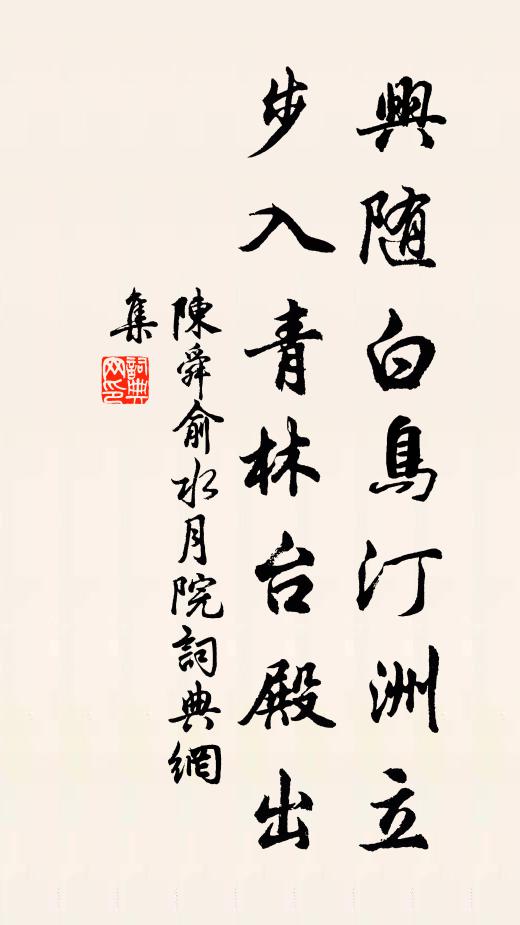 興随白鳥汀洲立
步入青林台殿出
陳舜俞水月院詞典網
集
詞典網印